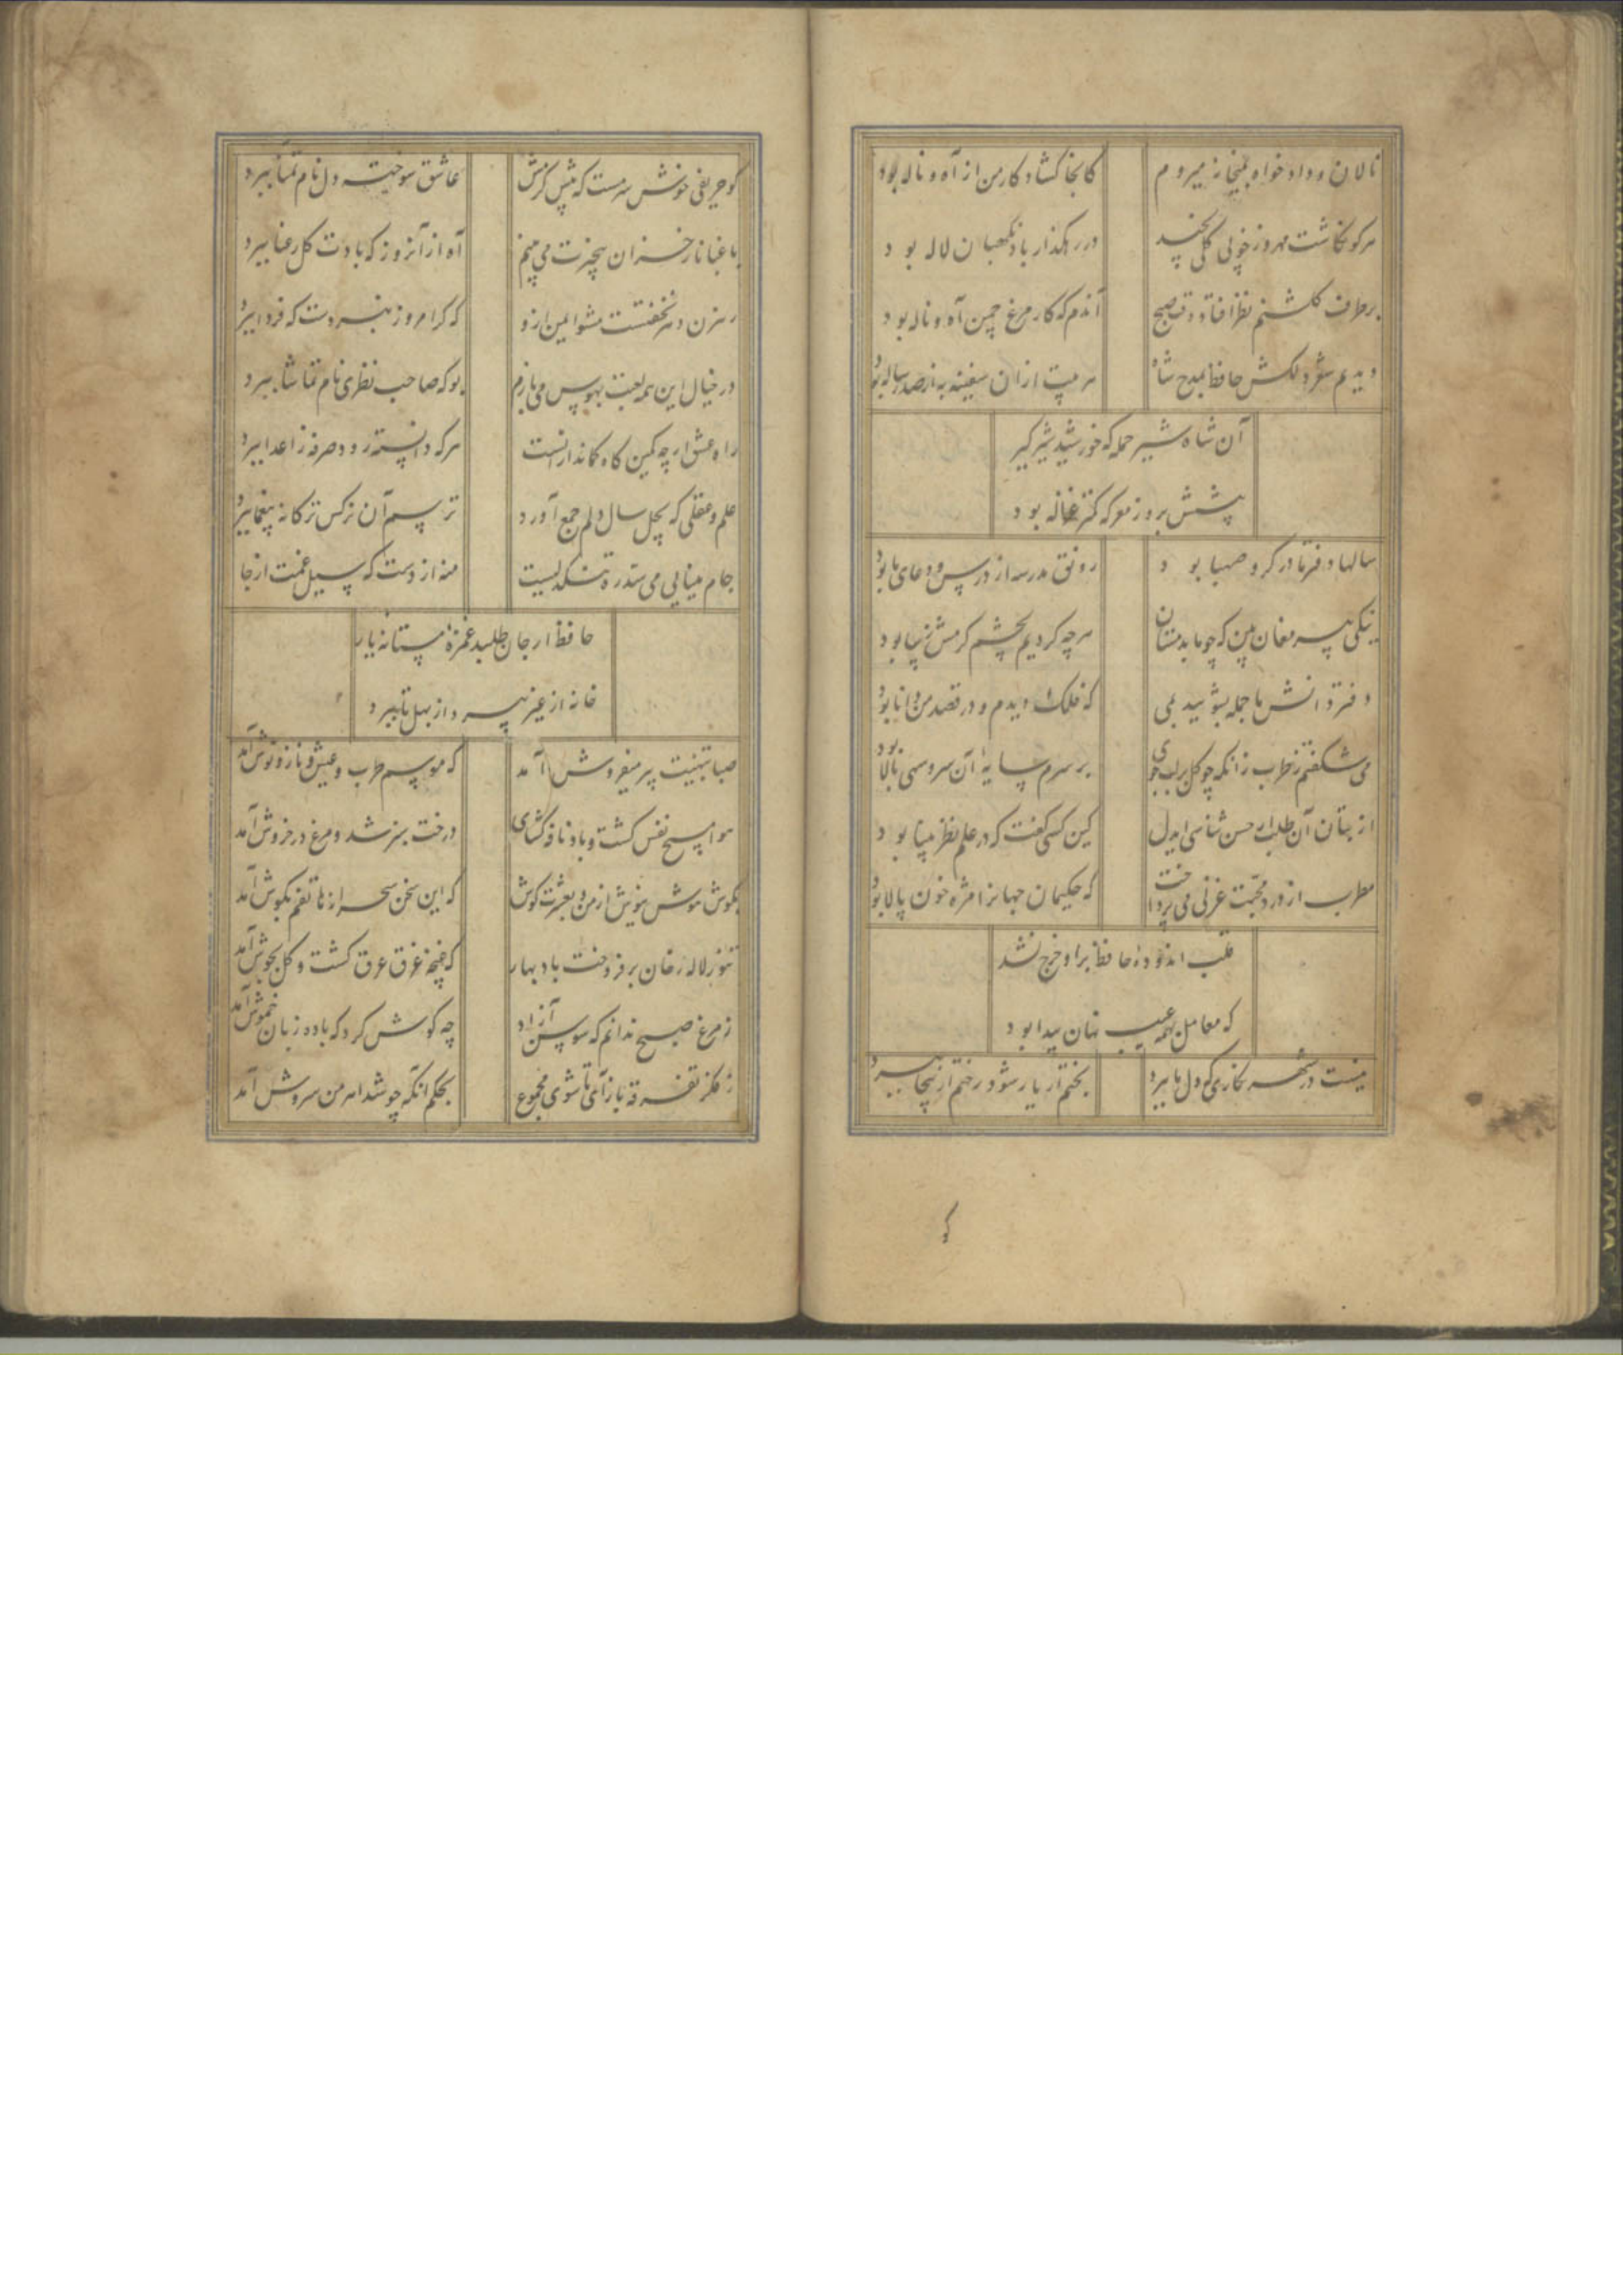 نالان و داد خواه بمیخانه میروم کانجا کشاد کار من از آه و ناله بود
هر کو نکاشت مهر و ز خوبی گلی نچید در رهگذار باد نگهبان لاله بود
بر طرف گلشنم نظر افتاد وقت صبح آندم که کار مرغ چمن آه و ناله بود
دیدیم شعر دلکش حافظ بمدح شاه هر بیت از ان سفینه به از صد رساله بود
آن شاه شیر حمله که خورشید شیر گیر
پیشش بروز معرکه کمتر غزاله بود
سالها دفتر ما در گرو صهبا بود رونق مدرسه از درس و دعای ما بود
نیکی پیر مغان بین که چو ما بدمستان هر چه کردیم بچشم کرمش زیبا بود
دفتر دانش ما جمله بشویید بمی که فلک دیدم و در قصد من دانا بود
می شکفتم ز طرب زانکه چو گل بر لب جوی بر سرم سایهٔ آن سرو سهی بالا بود
از بتان آن طلب ار حسن شناسی ایدل کین کسی گفت که در علم نظر بینا بود
مطرب از درد محبت غزلی می پرداخت که حکیمان جهانرا مژه خون پالا بود
قلب اندودهٔ حافظ بر او خرج نشد
که معامل بهمه عیب نهان بینا بود
نیست در شهر نگاری که دل ما ببرد بختم ار یار شود رختم ازینجا ببرد
کو
کو حریفی خوش سرمست که پیش کرمش عاشق سوخته دل نام تمنا ببرد
باغبانا ز خزان بیخبرت می بینم آه از آنروز که بادت گل رعنا ببرد
رهزن دهر نخفتست مشو ایمن ازو که گر امروز نبردست که فردا ببرد
در خیال این همه لعبت بهوس می بازم بو که صاحب نظری نام تماشا ببرد
راه عشق ار چه کمین گاه کماندارانست هر که دانسته رود صرفه ز اعدا ببرد
علم و عقلی که بچل سال دلم جمع آورد ترسم آن نرگس ترکانه بیغما ببرد
جام مینایی می سد ره تنگدلیست منه از دست که سیل غمت از جا
حافظ ار جان طلبد غمزهٔ مستانه یار
خانه از غیر بپرداز بهل تا ببرد
صبا بتهنیت پیر میفروش آمد که موسم طرب و عیش و ناز و نوش آمد
هوا مسیح نفس گشت و باد نافه گشای درخت سبز شد و مرغ در خروش آمد
بگوش هوش نیوش از من و بعشرت کوش که این سخن سحر از هاتفم بگوش آمد
تنور لاله رخان بر فروخت باد بهار که غنچه غرق عرق گشت و گل بجوش آمد
ز مرغ صبح ندانم که سوسن آزاد چه گوش کرد که با ده زبان خموش آمد
ز فکر تفرقه باز آی تا شوی مجموع بحکم انکه چو شد اهرمن سروش آمد